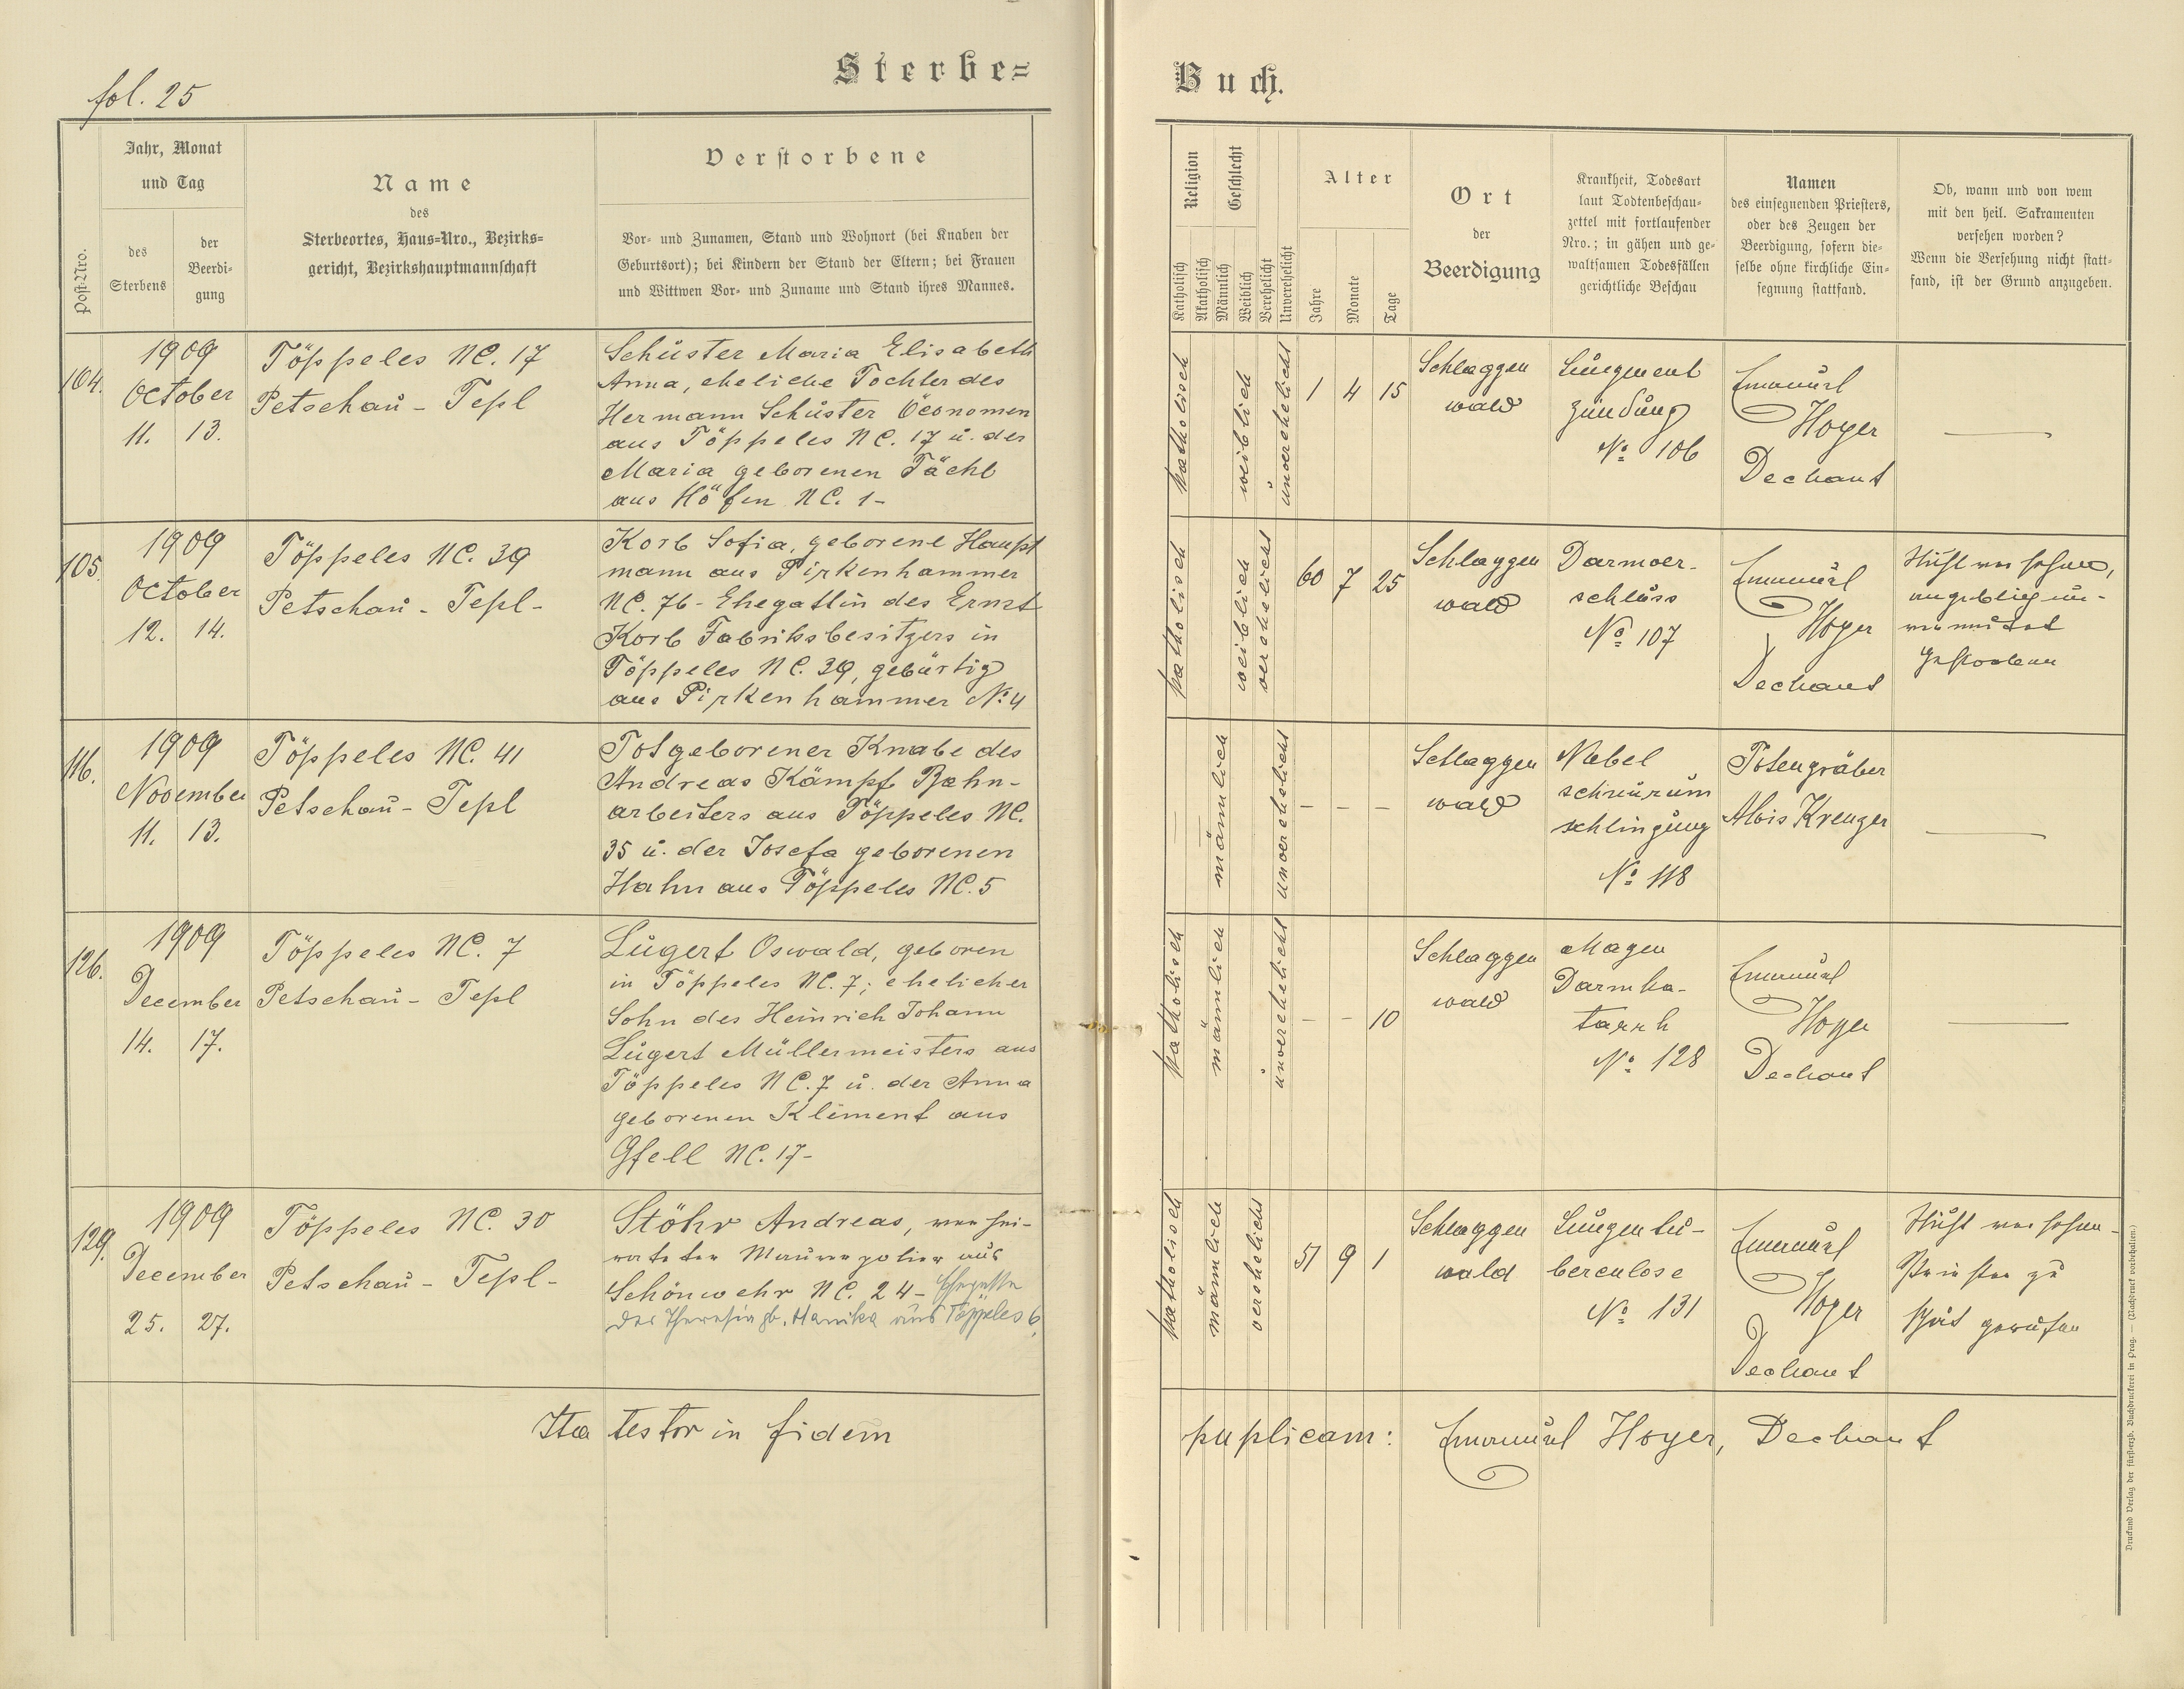 fol. 25
Sterbe=
Jahr, Monat
und Tag
Post-Nro.
des
Sterbens
der
Beerdi-
gung
Name
des
Sterbeortes, Haus=Nro., Bezirks=
gericht, Bezirkshauptmannschaft
Verstorbene
Vor- und Zunamen, Stand und Wohnort (bei Knaben der
Geburtsort); bei Kindern der Stand der Eltern; bei Frauen
und Wittwen Vor- und Zuname und Stand ihres Mannes.
104.
1909
October
11. 13.
Töppeles NC. 17
Petschau - Tepl
Schuster Maria Elisabeth
Anna, eheliche Tochter des
Hermann Schuster Öconomen
aus Töppeles NC. 17 u. der
Maria geborenen Tächl
aus Höfen NC. 1-
105.
1909
October
12. 14.
Töppeles NC. 39
Petschau - Tepl-
Korb Sofia, geborene Haupt
mann aus Pirkenhammer
NC. 76- Ehegattin des Ernst
Korb Fabriksbesitzers in
Töppeles NC. 39, gebürtig
aus Pirkenhammer No. 4
116.
1909
November
11. 13.
Töppeles NC. 41
Petschau- Tepl
Totgeborener Knabe des
Andreas Kämpf Bahn-
arbeiters aus Töppeles NC.
35 u. der Josefa geborenen
Hahn aus Töppeles NC. 5
126.
1909
December
14. 17.
Töppeles NC. 7
Petschau- Tepl
Lugert Oswald, geboren
in Töppeles NC. 7; ehelicher
Sohn des Heinrich Johann
Lugert Müllermeisters aus
Töppeles NC. 7 u. der Anna
geborenen Kliment aus
Gfell NC. 17-
129.
1909
December
25. 27.
Töppeles NC. 30
Petschau - Tepl-
Stöhr Andreas, verhei-
rateter Maurerpolier aus
Schönwehr NC. 24- Ehegatte
der Theresia gb. Hanika aus Töppeles 6
Ita testor in fidem
Buch.
Religion
Geschlecht
Katholisch
Akatholisch
Männlich
Weiblich
Verehelicht
Unverehelicht
Alter
Jahre
Monate
Tage
Ort
der
Beerdigung
Krankheit, Todesart
laut Todtenbeschau-
zettel mit fortlaufender
Nro.; in gähen und ge-
waltsamen Todesfällen
gerichtliche Beschau
Namen
des einsegnenden Priesters,
oder des Zeugen der
Beerdigung, sofern die-
selbe ohne kirchliche Ein-
segnung stattfand.
Ob, wann und von wem
mit den heil. Sakramenten
versehen worden?
Wenn die Versehung nicht statt-
fand, ist der Grund anzugeben.
katholisch
weiblich
unverehelicht
1 4 15
Schlaggen
wald
Lungenent
zündung
No. 106
Emanuel
Hoyer
Dechant
—
katholisch
weiblich
verehelicht
60 7 25
Schlaggen
wald
Darmver-
schluss
No. 107
Emanuel
Hoyer
Dechant
Nicht versehen,
angeblich un-
vermutet
gestorben
—
männlich
unverehelicht
- - -
Schlaggen
wald
Nabel
schnurum
schlingung
No. 118
Totengräber
Alois Kreuzer
—
katholisch
männlich
unverehelicht
- - 10
Schlaggen
wald
Magen
Darmka-
tarrh
No. 128
Emanuel
Hoyer
Dechant
—
katholisch
männlich
verehelicht
51 9 1
Schlaggen
wald
Lungentu-
berculose
No. 131
Emanuel
Hoyer
Dechant
Nicht versehen-
Priester zu
spät gerufen
puplicam: Emanuel Hoyer, Dechant
Druck und Verlag der fürsterzb. Buchdruckerei in Prag. — (Nachdruck vorbehalten.)